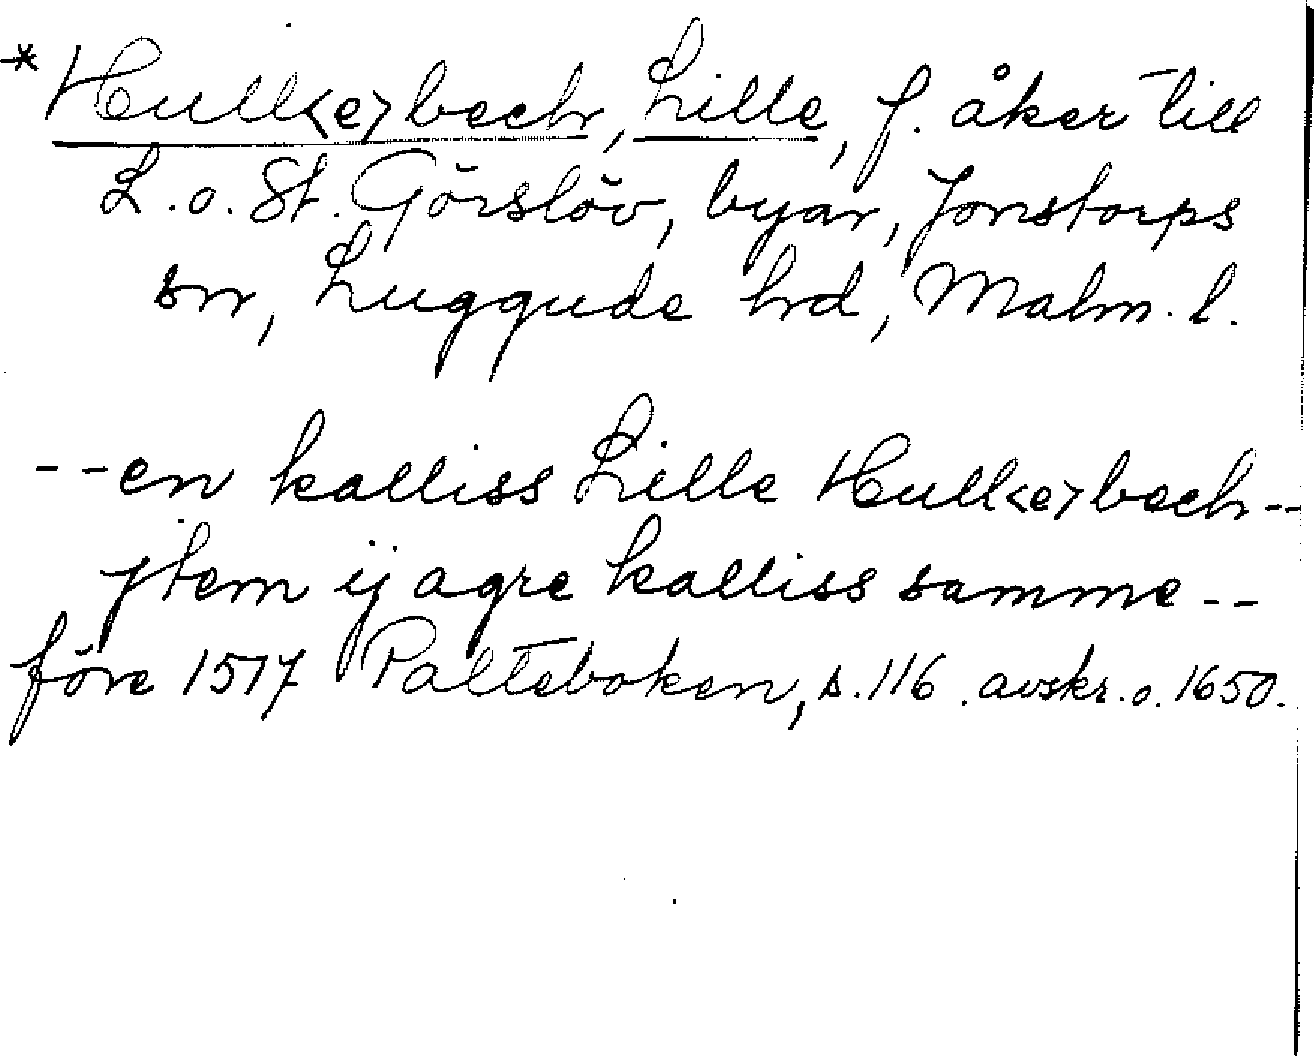 * Hull<e>bech, Lille, f. åker till
L. o. St. Görslöv, byar, Jonstorps
sn, Luggude hrd, Malm. l.
--en kalliss Lille Hull<e>bech--
jtem ij agre kalliss samme--
före 1517 Palteboken, s. 116. avskr. o. 1650.